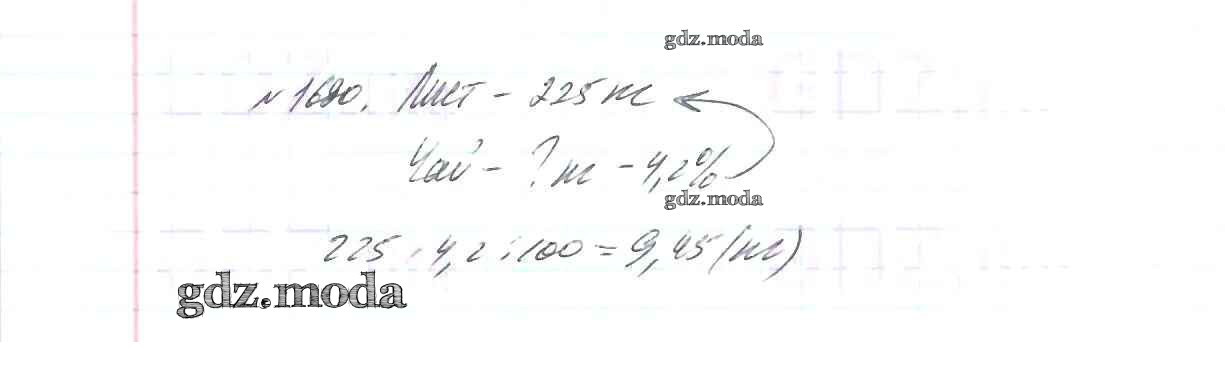 gdz.moda
№ 1690. Лист - 225 кг
Чай - ? кг - 4,2%
gdz.moda
225 · 4,2 : 100 = 9,45 (кг)
gdz.moda